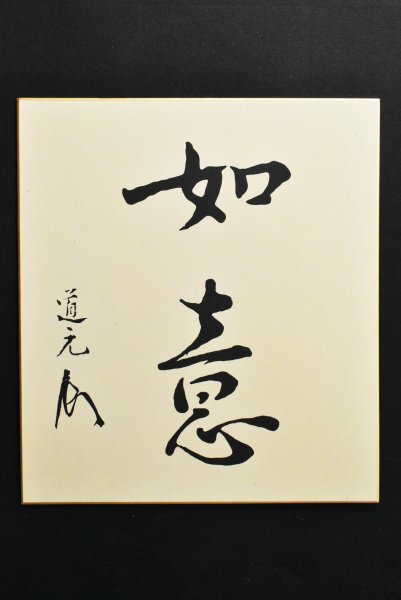 如意
道元